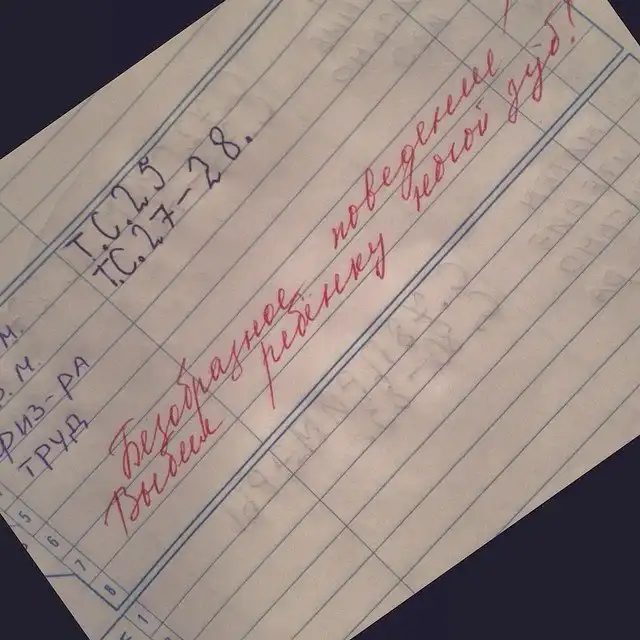 Т.С. 25
Т.С. 27-28.
М.
. М.
ФИЗ-РА
ТРУД
Безобразное поведение!
Выбил ребёнку ногой зуб!
5
6
7
8
1